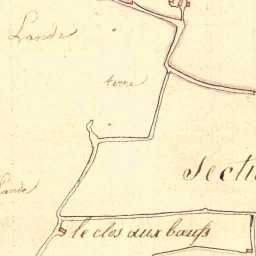 Lande
terre
Secti
Lande
le clos aux bœufs